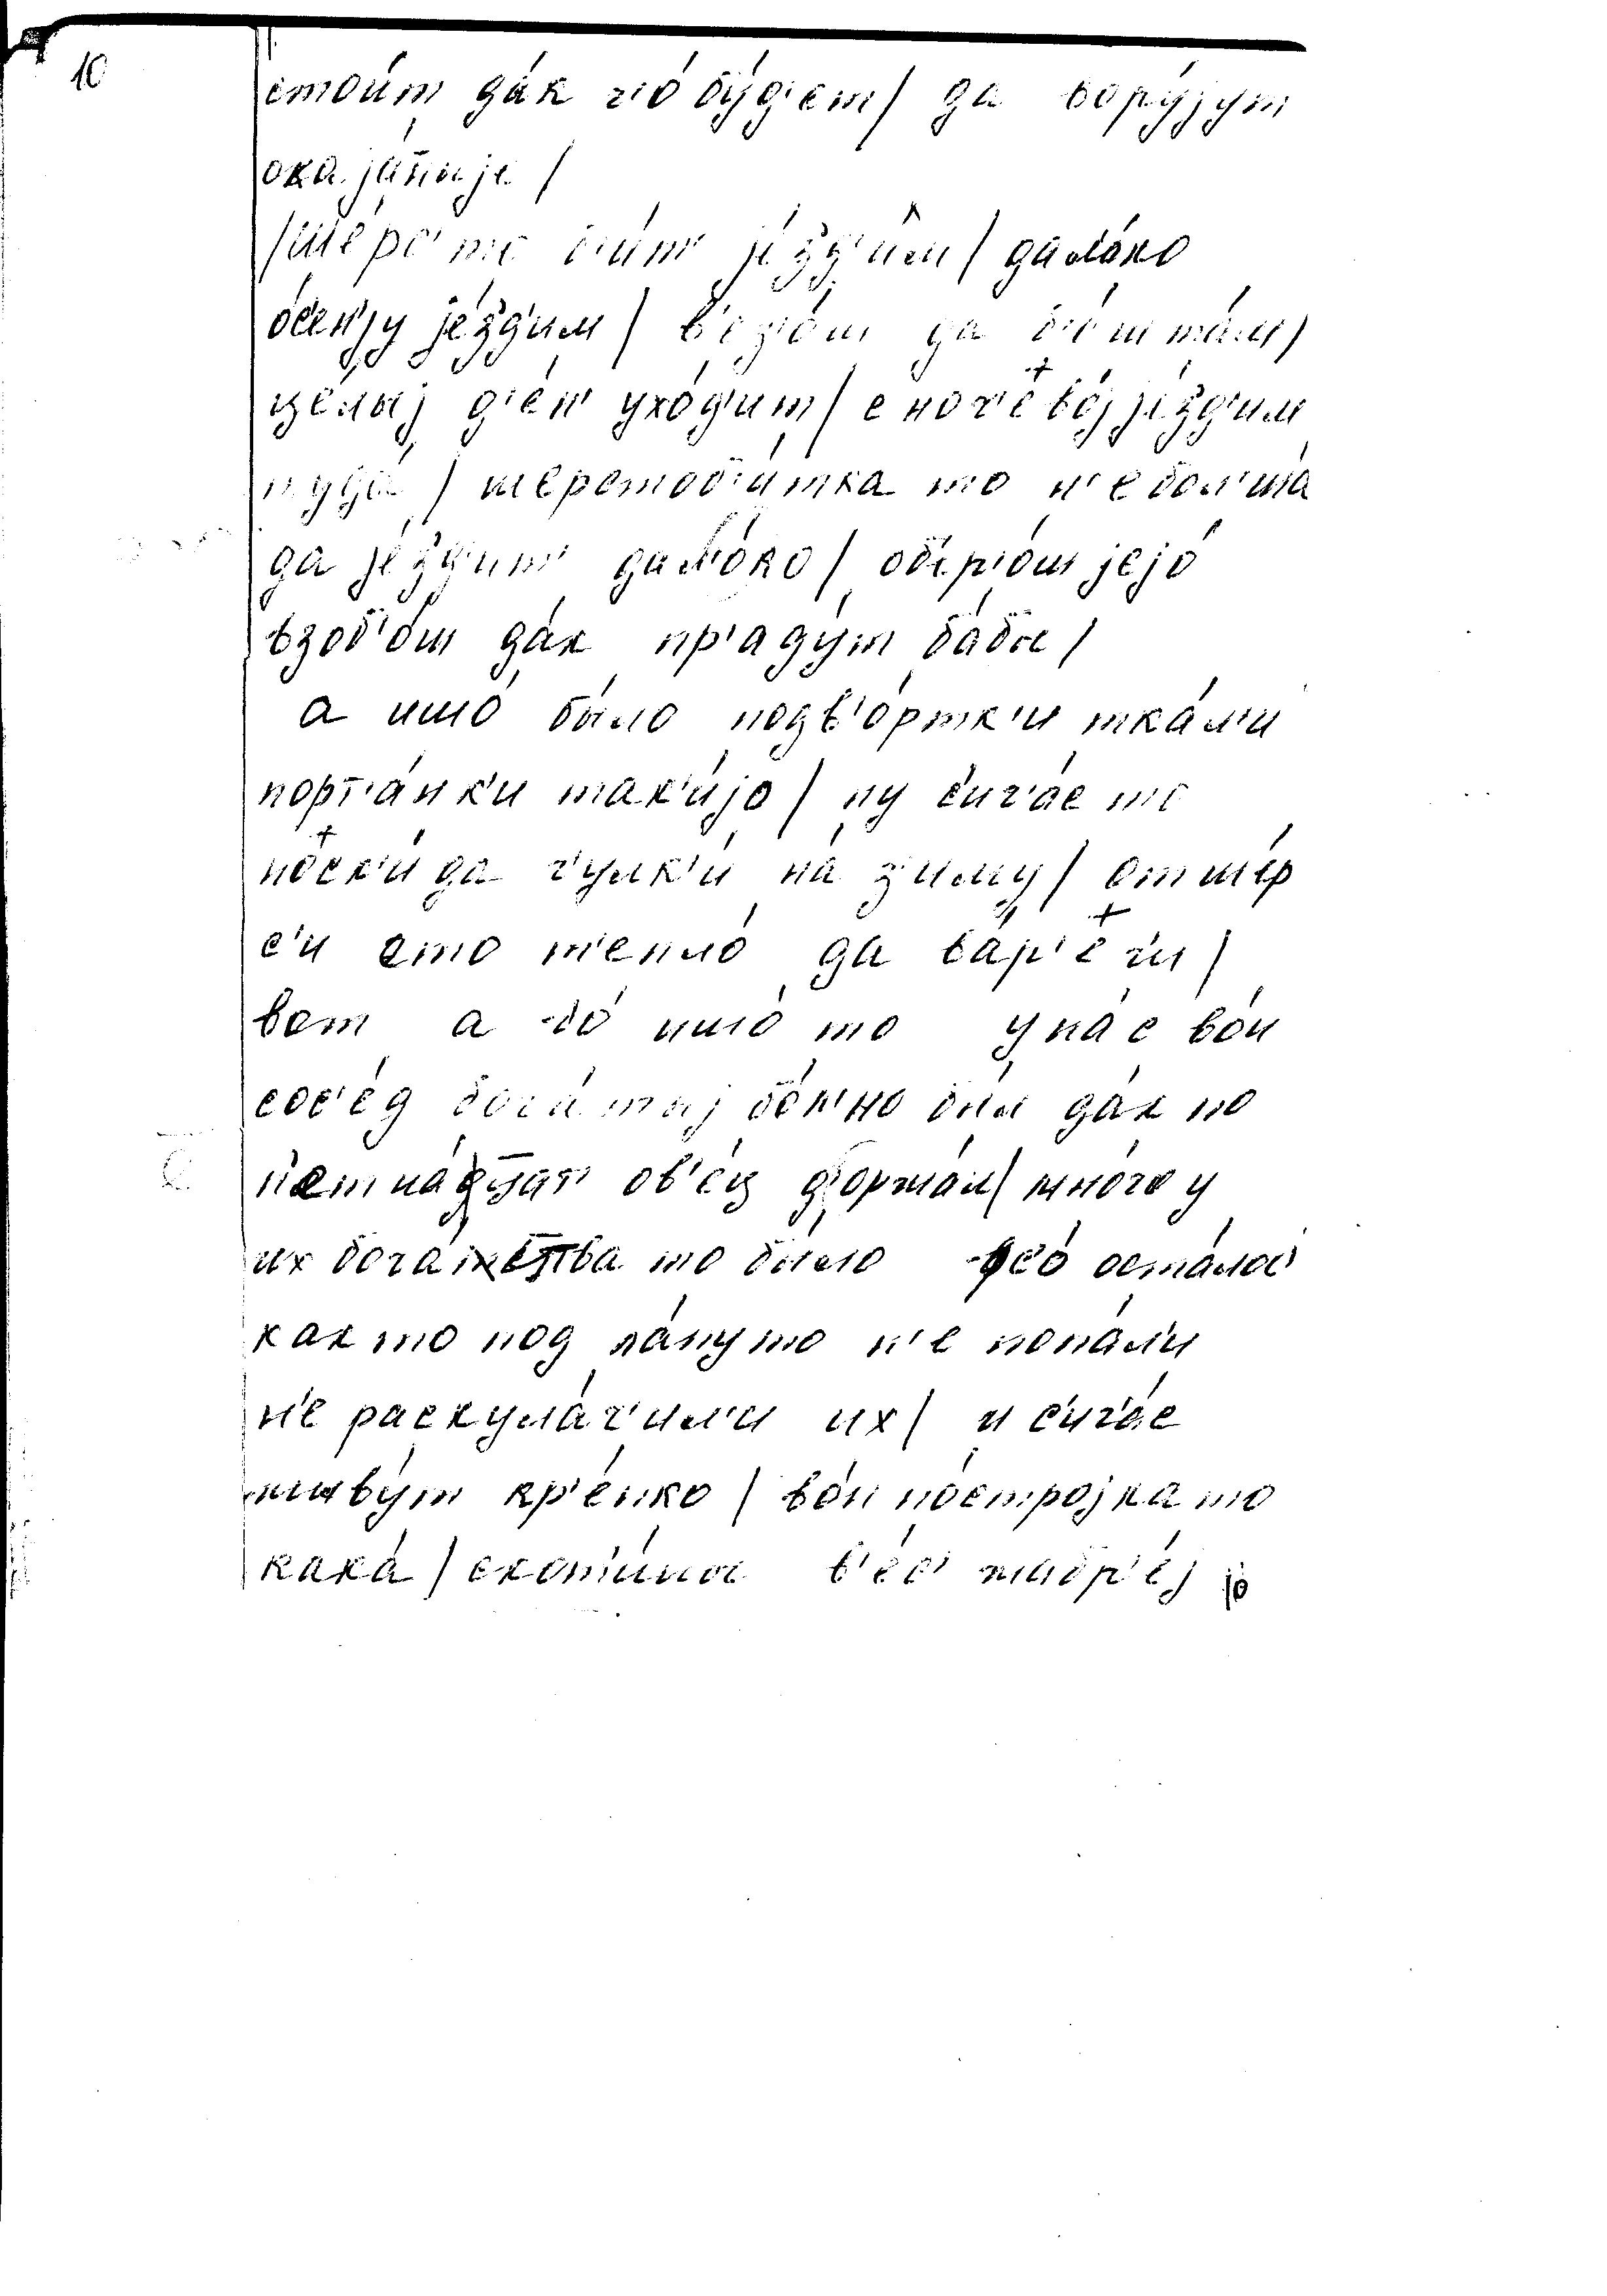 10
стои́т да́к ч'о́ бу́д'ет / да вору́јут
окаја́ныје /
/ ше́рс' то б'и́т' је́зд'им / дал'о́ко
о́с'ен'ју је́зд'им / в'ез'о́ш да б'јо́ш та́м /
це́лыј д'е́н' ухо́д'ит / с ноч'ово́ј је́зд'им
туда́ / шерстоб'и́тка то н'ебол'ша́
да је́зд'ит' дал'о́ко / об'ер'о́ш јејо́
взоб'јо́ш да́к пр'аду́т ба́бы /
а ишо́ бы́ло подв'о́ртк'и тка́л'и
порт'а́нк'и так'и́јо / ну с'ич'а́с то
носк'и́ да ч'улк'и́ на́ з'иму / от ше́р
с'и ето т'епло́ да ва́р'еги /
вот а чо́ ишо́ то у на́с во́н
сос'е́д бога́тыј бо́л'но бы́л да́к по
п'етна́дцат' ов'е́ц д'оржа́л / мно́го у
их бога́тства то бы́ло ус'о́ оста́лос'
как то под ла́пу то н'е попа́л'и
н'е раскула́ч'ил'и их / и с'ич'а́с
живу́т кр'е́пко / во́н по́стројка то
кака́ / скот'и́ны в'е́с'